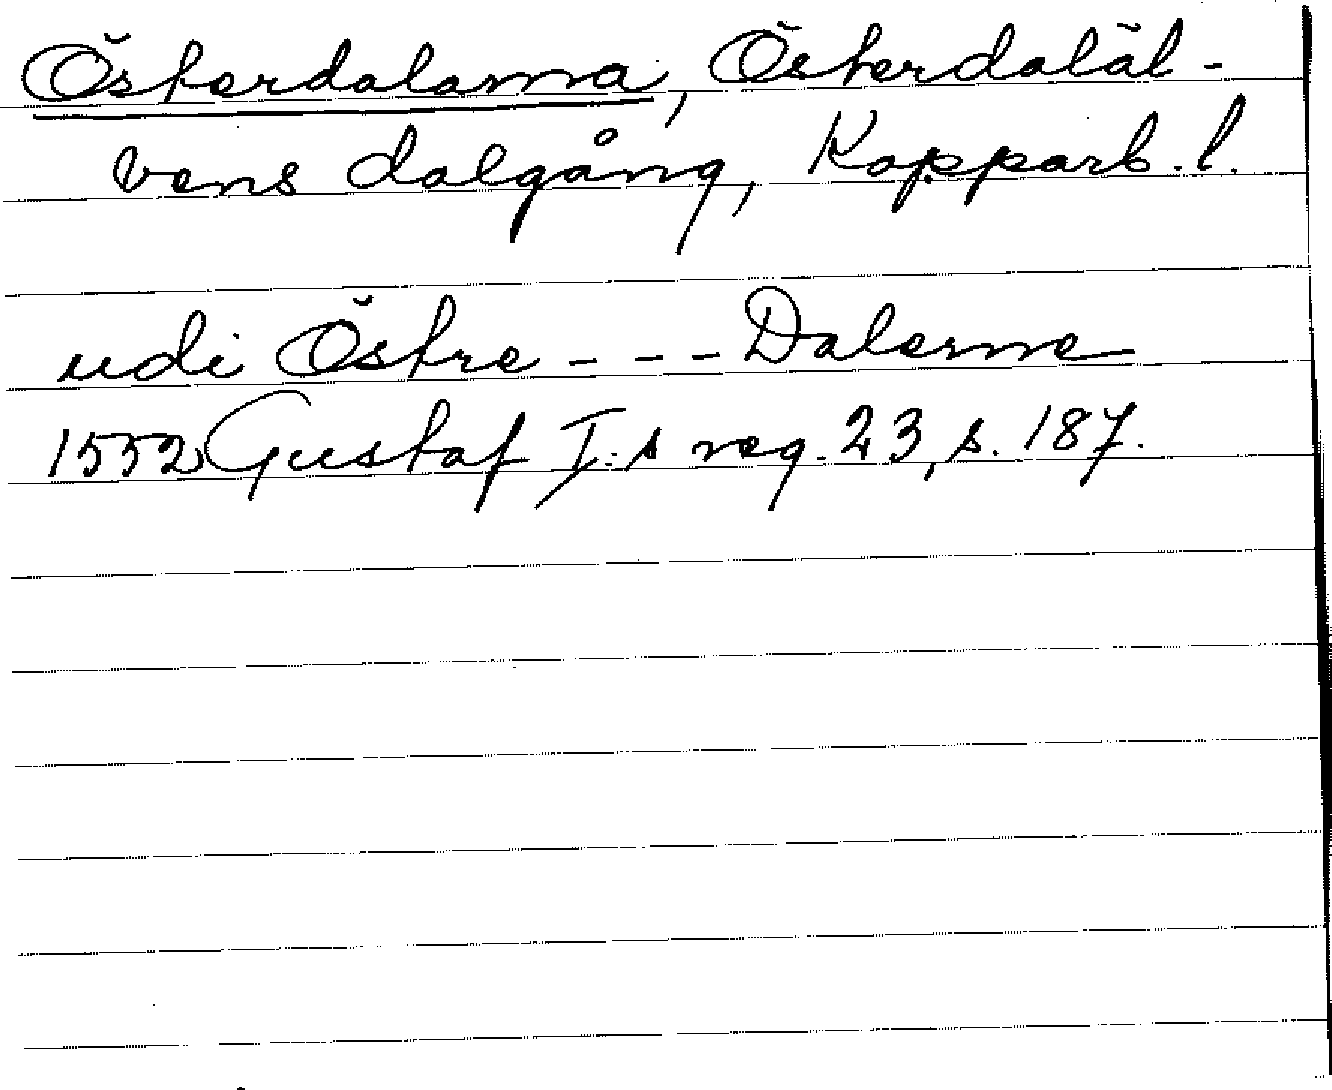 Österdalarna, Österdaläl-
vens dalgång, Kopparb. l.
udi Östre - - - Dalerne
1552 Gustaf I:s reg. 23, s. 187.